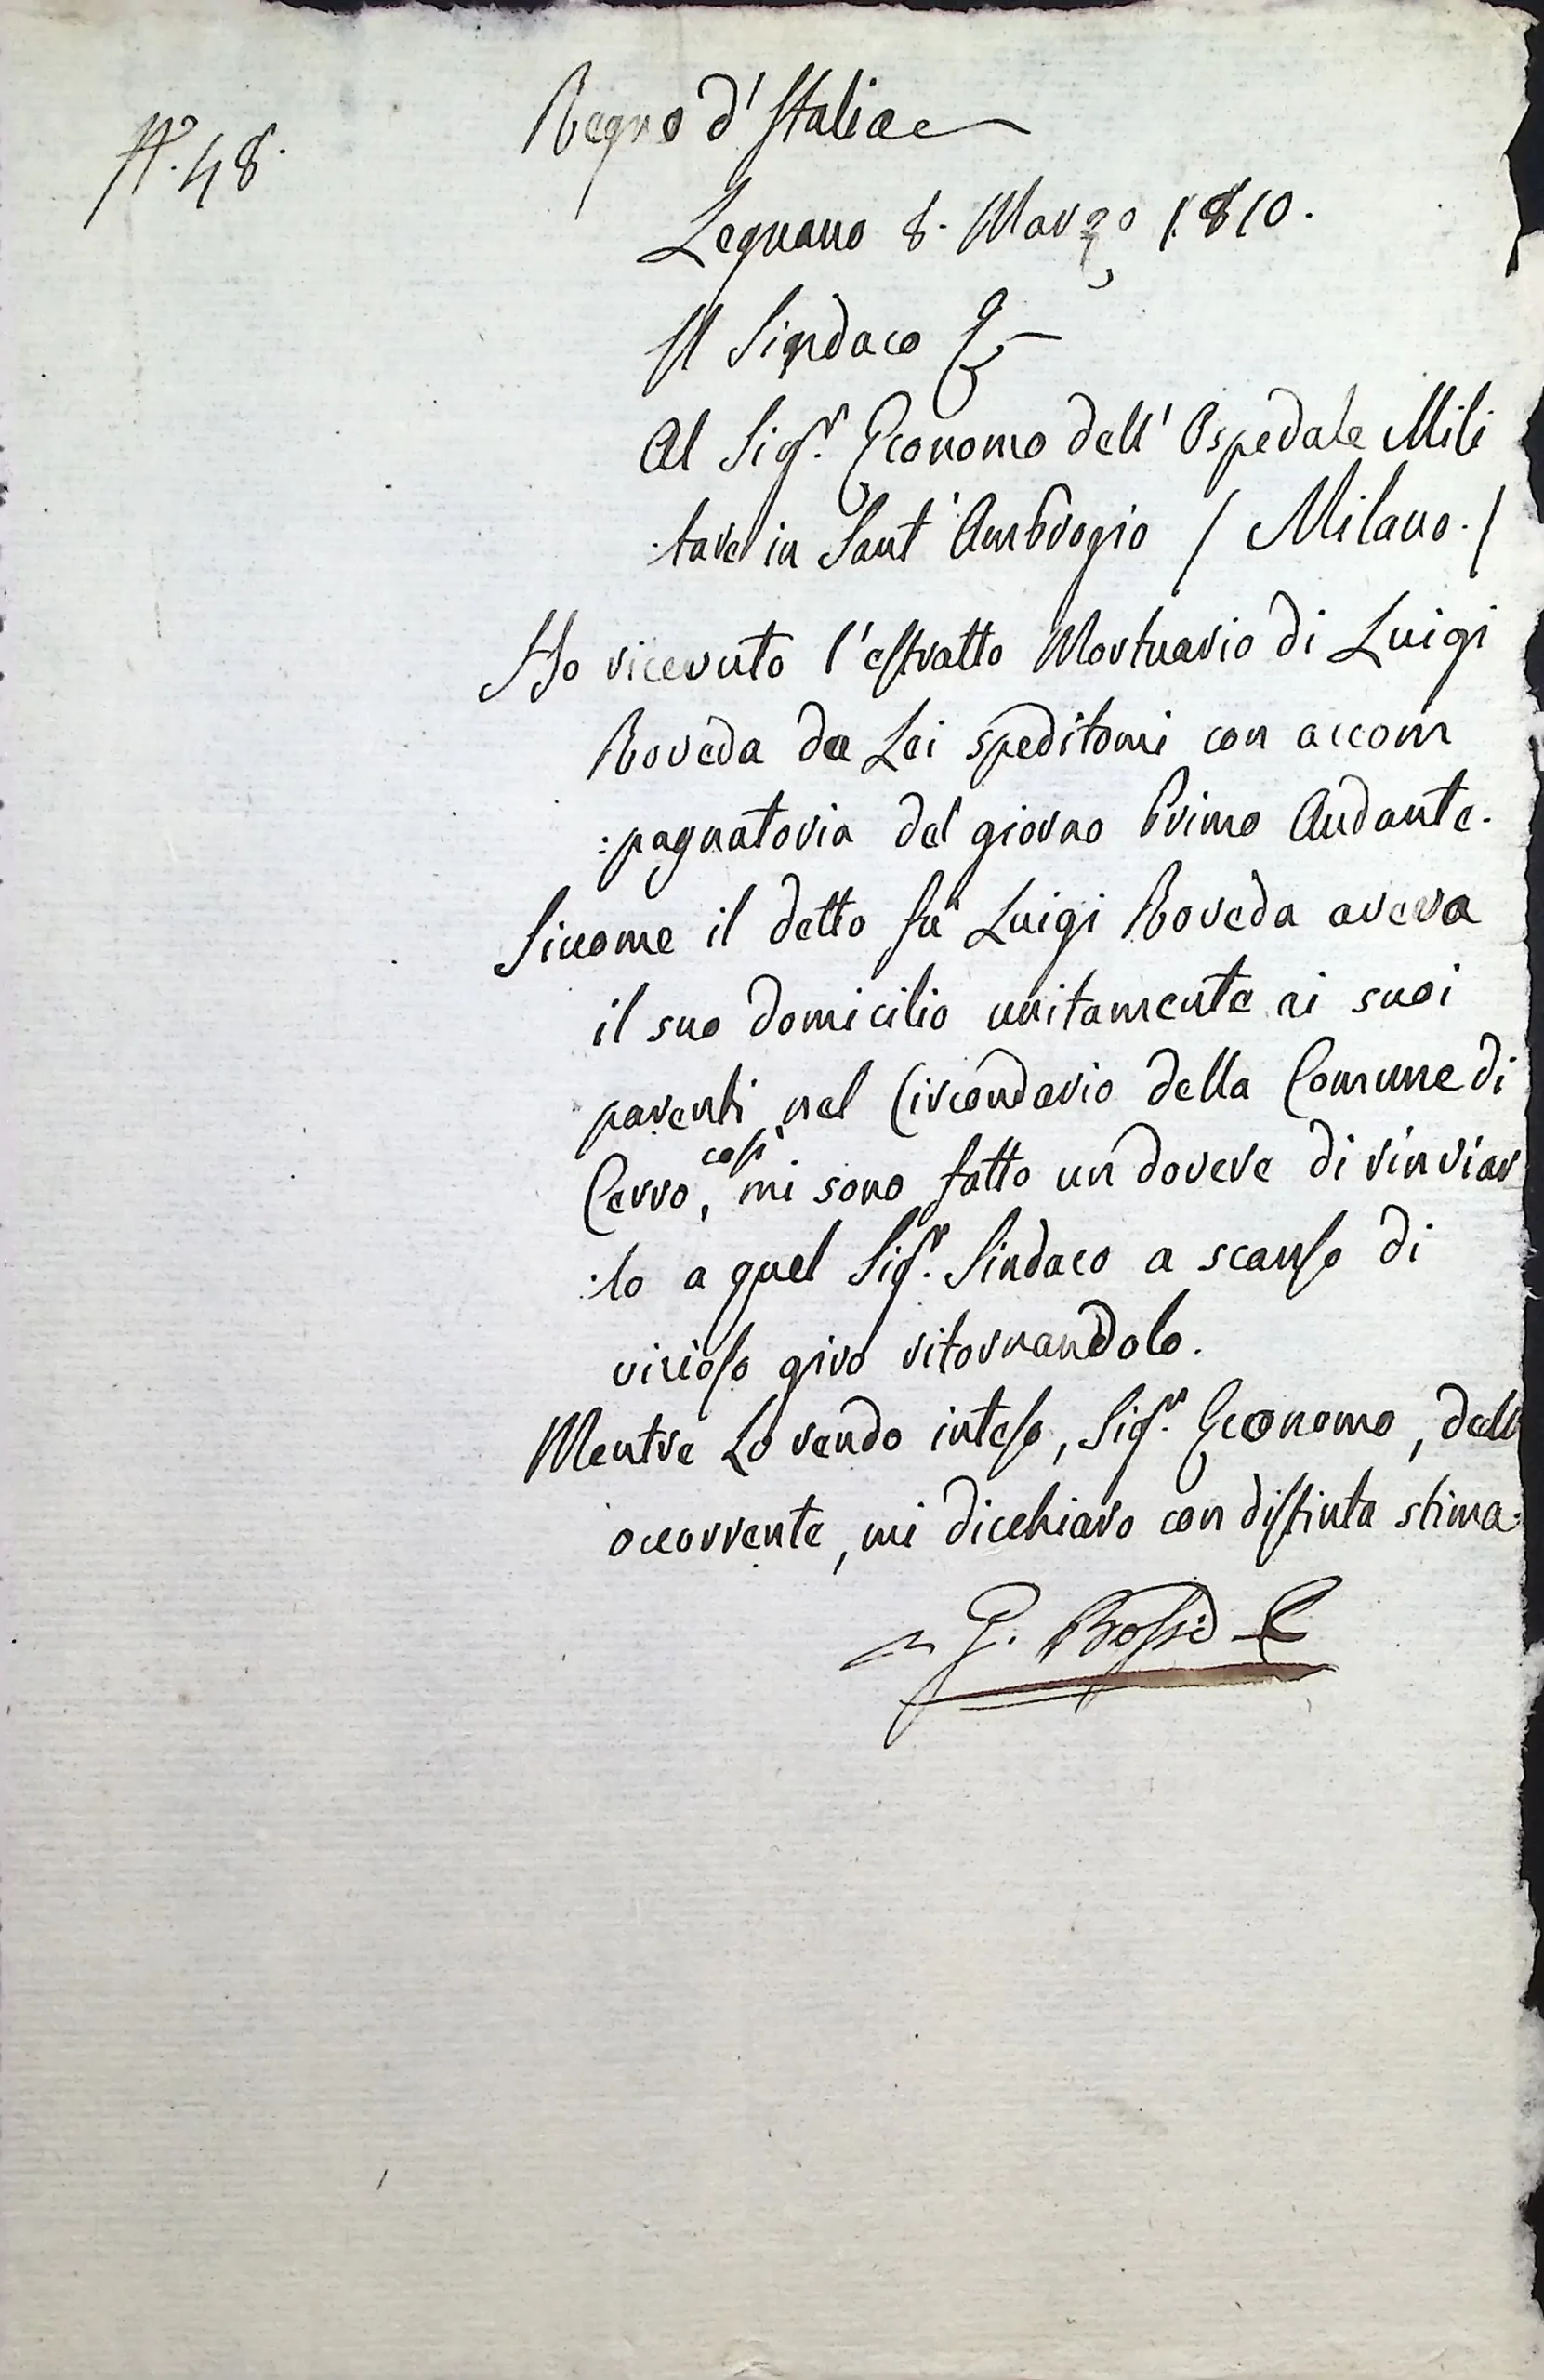 N.° 48.
Regno d'Italia
Legnano 8. Marzo 1810.
Il Sindaco
Al Sig.r Economo dell' Ospedale Mili
tare in Sant' Ambrogio / Milano. /
Ho ricevuto l'estratto Mortuario di Luigi
Roveda da Lei speditomi con accom
:pagnatoria del giorno Primo Andante.
Siccome il detto fù Luigi Roveda aveva
il suo domicilio unitamente ai suoi
parenti nel Circondario della Comune di
Cerro, così mi sono fatto un dovere di rinviar
:lo a quel Sig.r Sindaco a scanso di
vizioso giro ritornandolo.
Mentre Lo rendo inteso, Sig.r Economo, dell
occorrente, mi dicchiaro con distinta stima.
G. Bossi